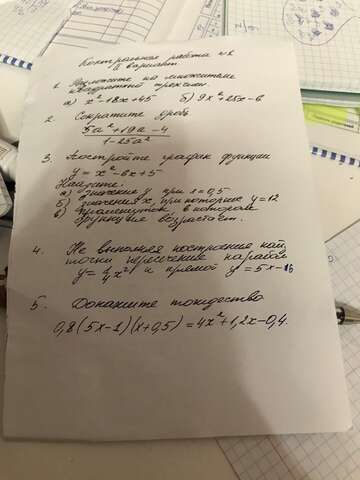 Контрольная работа №2
II вариант.
1. Разложите на множители
квадратный трехчлен.
а) x²-18x+45 б) 9x²+25x-6
2. Сократите дробь
5a²+19a-4
1-25a²
3. Постройте график функции
y = x²-6x+5
Найдите:
а) значение y при x=0,5
б) значения x, при которых y=12
в) промежуток в котором
функция возрастает.
4. Не выполняя построение най
точки пересечение парабол
y=1/4x² и прямой y=5x-16
5. Докажите тождество
0,8(5x-1)(x+0,5)=4x²+1,2x-0,4.